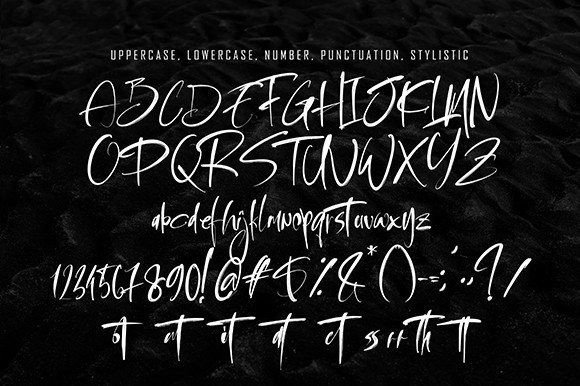 UPPERCASE, LOWERCASE, NUMBER, PUNCTUATION, STYLISTIC
ABCDEFGHIJKLMN
OPQRSTUVWXYZ
abcdefhijklmnopqrstuvwxyz
1234567890!@#$%&*()-=;',.?/
ot at it dt et ss rr th tt